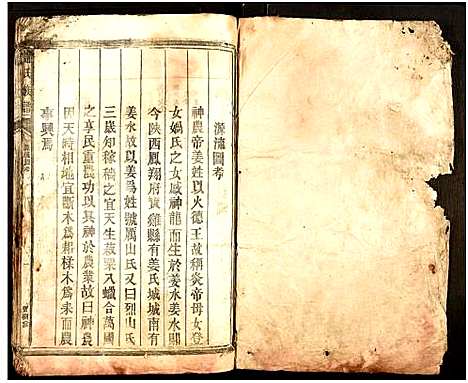 源流圖考
神農帝姜姓以火德王故稱炎帝母女登
女媧氏之女感神龍而生於姜水姜水閞
今陝西鳳翔府寶雞縣有姜氏城城南有
姜水故以姜為姓號厲山氏又曰烈山氏
三歲知稼穡之宜天生菽粟入蠟合萬國
之享民重農功以其神於農業故曰神焉
因天時相地宜斷木為耜楺木為耒而農
事興焉